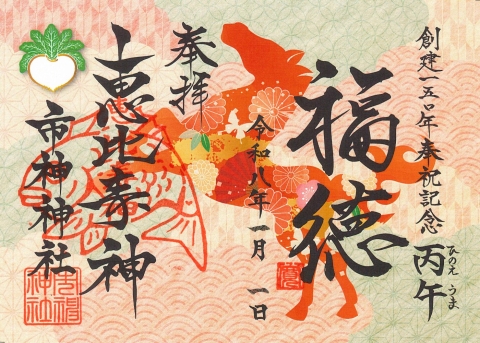 創建一五〇年奉祝記念 丙午
ひのえ うま
福徳
令和八年一月一日
奉拝
恵比寿神
市神神社